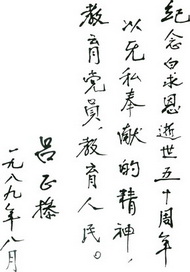 纪念白求恩逝世五十周年
以无私奉献的精神，
教育党员，教育人民。
吕正操
一九八九年八月